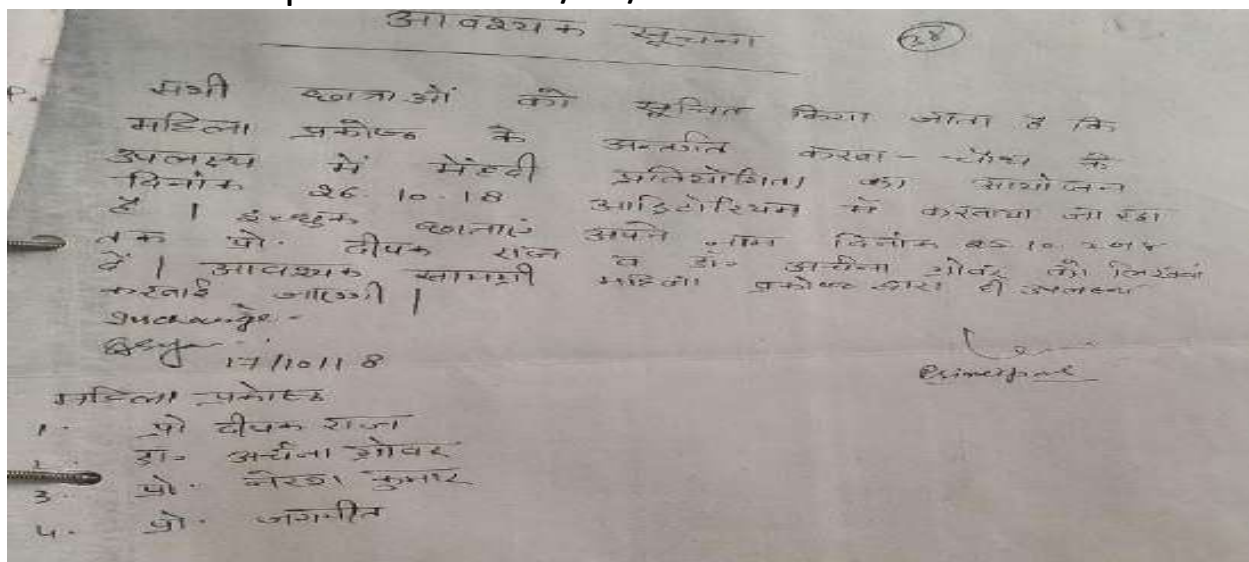 आवश्यक सूचना
28
सभी छात्राओं को सूचित किया जाता है कि
महिला प्रकोष्ठ के अन्तर्गत करवा-चौथ के
उपलक्ष्य में मेंहदी प्रतियोगिता का आयोजन
दिनांक 26.10.18 आडिटोरियम में करवाया जा रहा
है। इच्छुक छात्राएं अपने नाम दिनांक 25.10.2018
तक प्रो. दीपक राजा व डा. अर्चना ग्रोवर को लिखवा
दें। आवश्यक सामग्री महिला प्रकोष्ठ द्वारा ही उपलब्ध
करवाई जाएगी।
Incharge -
17/10/18
Principal
महिला प्रकोष्ठ
1. प्रो दीपक राजा
2. डा. अर्चना ग्रोवर
3. प्रो. नरेश कुमार
4. प्रो. जगमीत